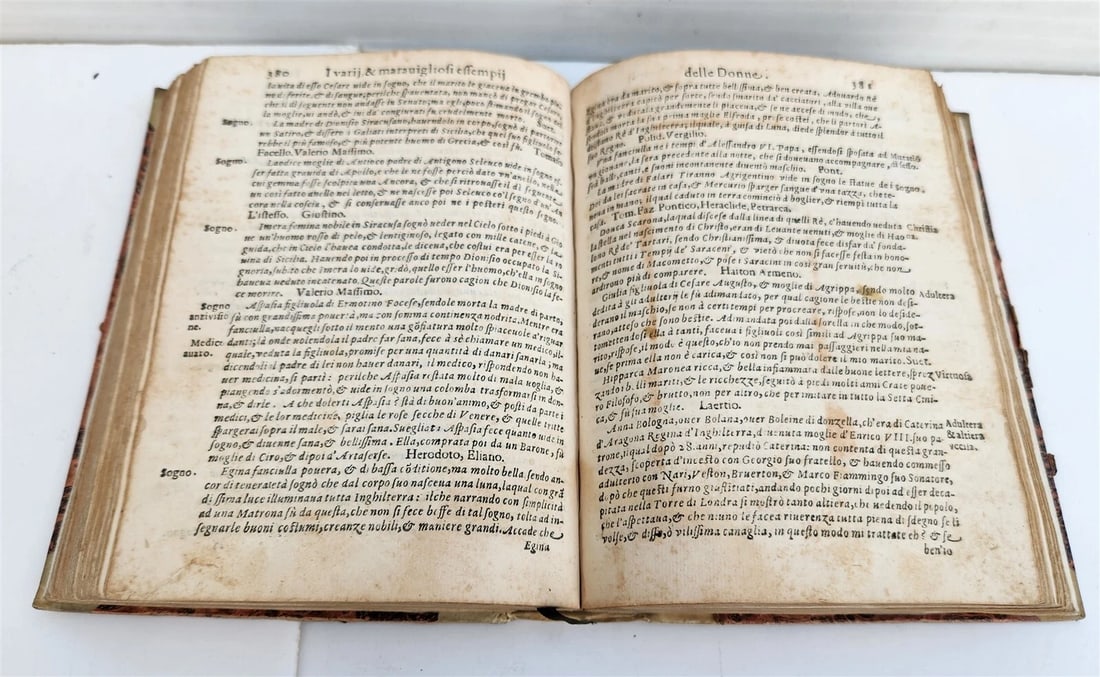 380 I varij, & marauigliosi essempij
la vita di esse Cesare vide in sogno, che il marito le giaceua in grembo pie-
no di ferite, & di sangue, perilche spauentata, non mancò di pregar Cesare
che il dì seguente non andasse in Senato; ma egli, poco stimando il sogno del-
la moglie, vi andò, & iui da congiurati fu crudelmente morto.
Sogno. La madre di Dionisio Siracusano, hauendolo in corpo, sognò di partorire
un Satiro, & dissero i Galiati interpreti di Sicilia, che quel suo figliuolo sa-
rebbe il più famoso, & più potente huomo di Grecia, & così fù. Tomaso
Facello. Valerio Massimo.
Sogno. Laodice moglie di Antioco padre di Antigono Seleuco vide in sogno es-
ser fatta grauida di Apollo, e che le ne fosse perciò dato vn'anello, nella
cui gemma fosse scolpita vna Ancora, & che si ritrouasse il dì seguente
un così fatto anello nel letto, & ne nascesse poi Seleuco co'l segno d'vn'An
cora nella coscia, & si conseruasse anco poi ne i posteri questo segno.
L'istesso. Giustino.
Sogno. Imera femina nobile in Siracusa sognò veder nel Cielo sotto i piedi à Gio
ue vn'huomo rosso di pelo, & lentiginoso, legato con mille catene, & la
guida, che in Cielo l'hauea condotta, le diceua, che costui era per esser la ro
uina di Sicilia. Hauendo poi in processo di tempo Dionisio occupato la Si-
gnoria, subito che Imera lo uide, gridò, quello esser l'huomo, ch'ella in sogno
haueua veduto incatenato. Queste parole furono cagion che Dionisio la fe-
ce morire. Valerio Massimo.
Sogno Aspasia figliuola di Ermotino Focese, sendole morta la madre di parto,
antivisio fù con grandissima pouertà, ma con somma continenza nodrita. Mentre era
ne. fanciulla, nacquegli sotto il mento una gōfiatura molto spiaceuole a riguar
Medici danti; là onde uolendola il padre far sana, fece à sè chiamare un medico, il-
auaro. quale, veduta la figliuola, promise per una quantità di danari sanarla; ma
dicendoli il padre di lei non hauer danari, il medico, rispondendo non ha-
uer medicina, si partì: perilche Aspasia restata molto di mala voglia, &
piangendo s'adormentò, & uide in sogno una colomba trasformarsi in don-
na, & dirle. A che dolerti Aspasia? stà di buon'animo, & posti da parte i
medici, & le lor medicine, piglia le rose secche di Venere, & quelle trite
spargerai sopra il male, & sarai sana. Suegliata Aspasia fece quanto uide in
sogno, & diuenne sana, & bellissima. Ella, comprata poi da vn Barone, fù
moglie di Ciro, & dipoi d'Artaserse. Herodoto, Eliano.
Sogno. Egina fanciulla pouera, & di bassa cōditione, ma molto bella, sendo an-
cor di tenera età sognò che dal corpo suo nasceua una luna, la qual con grā
dissima luce illuminaua tutta Inghilterra: ilche narrando con simplicità
ad una Matrona fù da questa, che non si fece beffe di tal sogno, tolta ad in-
segnarle buoni costumi, creanze nobili, & maniere grandi. Accade che
Egina
delle Donne. 381
Egina era da marito, & sopra tutte bellissima, & ben creata, Adouardo Rè
d'Inghilterra capitò per sorte, sendo smarito da' cacciatori, alla villa oue
suo Regno. Polid. Vergilio.
Vna fanciulla ne i tempi d'Alessandro VI. Papa, essendosi sposata ad
sta, balli, canti, e suoni incontanente diuentò maschio. Pont.
La madre di Falari Tiranno Agrigentino vide in sogno le statue de i
Dei da lei sacrate in casa, & Mercurio sparger sangue d'vna tazza, che te-
neua in mano; il qual caduto in terra cominciò à boglier, & riempì tutta la
casa. Tom. Faz. Pontico, Heraclide, Petrarca.
Donca Scarona, la qual discese dalla linea di quelli Rè, c'hauendo veduta
la stella nel nascimento di Christo, erano di Leuante venuti, & moglie di
Rè de' Tartari, sendo Christianissima, & diuota fece disfar da' fonda-
menti tutti i Tempij de' Saraceni, & vietò che non si facesse festa in hono-
re, & nome di Macometto, & pose i Saracini in così gran seruitù, che non
ardirono più di comparere. Haiton Armeno.
Giulia figliuola di Cesare Augusto, & moglie di Agrippa, sendo molto Adultera
dedita à gli adulterij le fù adimandato, per qual cagione le bestie non desi-
derano il maschio, se non à certi tempi per procreare, rispose, non lo deside-
rano, atteso che sono bestie. Ad imandata poi dalla sorella in che modo, sot-
tomettendosi ella à tanti, faceua i figliuoli così simili ad Agrippa suo ma-
rito, rispose, il modo è questo, ch'io non prendo mai passaggieri nella mia na
ue, se prima ella non è carica, & così non si può dolere il mio marito. Suet.
Hipparca Maronea ricca, & bella infiammata dalle buone lettere, sprez Virtuosa
zando i belli mariti, & le ricchezze, seguitò à piedi molti anni Crate pouero
Filosofo, & brutto, non per altro, che per imitare in tutto la Setta Cini-
ca, & fù sua moglie. Laertio.
Anna Bologna, ouer Bolana, ouer Boleine di donzella, ch'era di Caterina Adultera
d'Aragona Regina d'Inghilterra, diuenuta moglie d'Enrico VIII. suo pa & altiera
trone, il qual dopò 28. anni, repudiò Caterina: non contenta di questa gran-
dezza, scoperta d'incesto con Georgio suo fratello, & hauendo commesso
adulterio con Nari, Veston, Bruerton, & Marco Fiammingo suo Sonatore,
dopò che questi furno giustitiati, andando pochi giorni dipoi ad esser deca-
pitata nella Torre di Londra si mostrò tanto altiera, che uedendo il popolo,
che l'aspettaua, & che niuno le facea riuerenza tutta piena di sdegno se li
volse, & disse, ò vilissima canaglia, in questo modo mi trattate eh? & se
ben'io